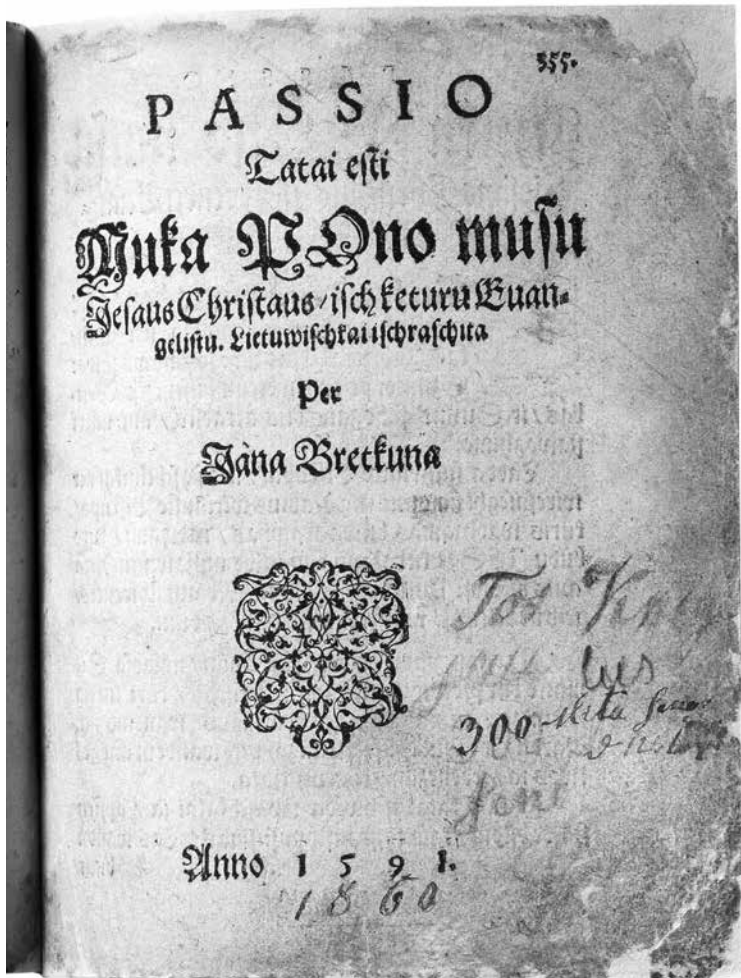 355.
PASSIO
Tatai esti
Muka POno musu
Jesaus Christaus/ isch keturu Euan-
gelistu. Lietuwischkai ischraschita
Per
Jàna Bretkuna
Toi
bus
300 Metu
Anno 1591.
1860